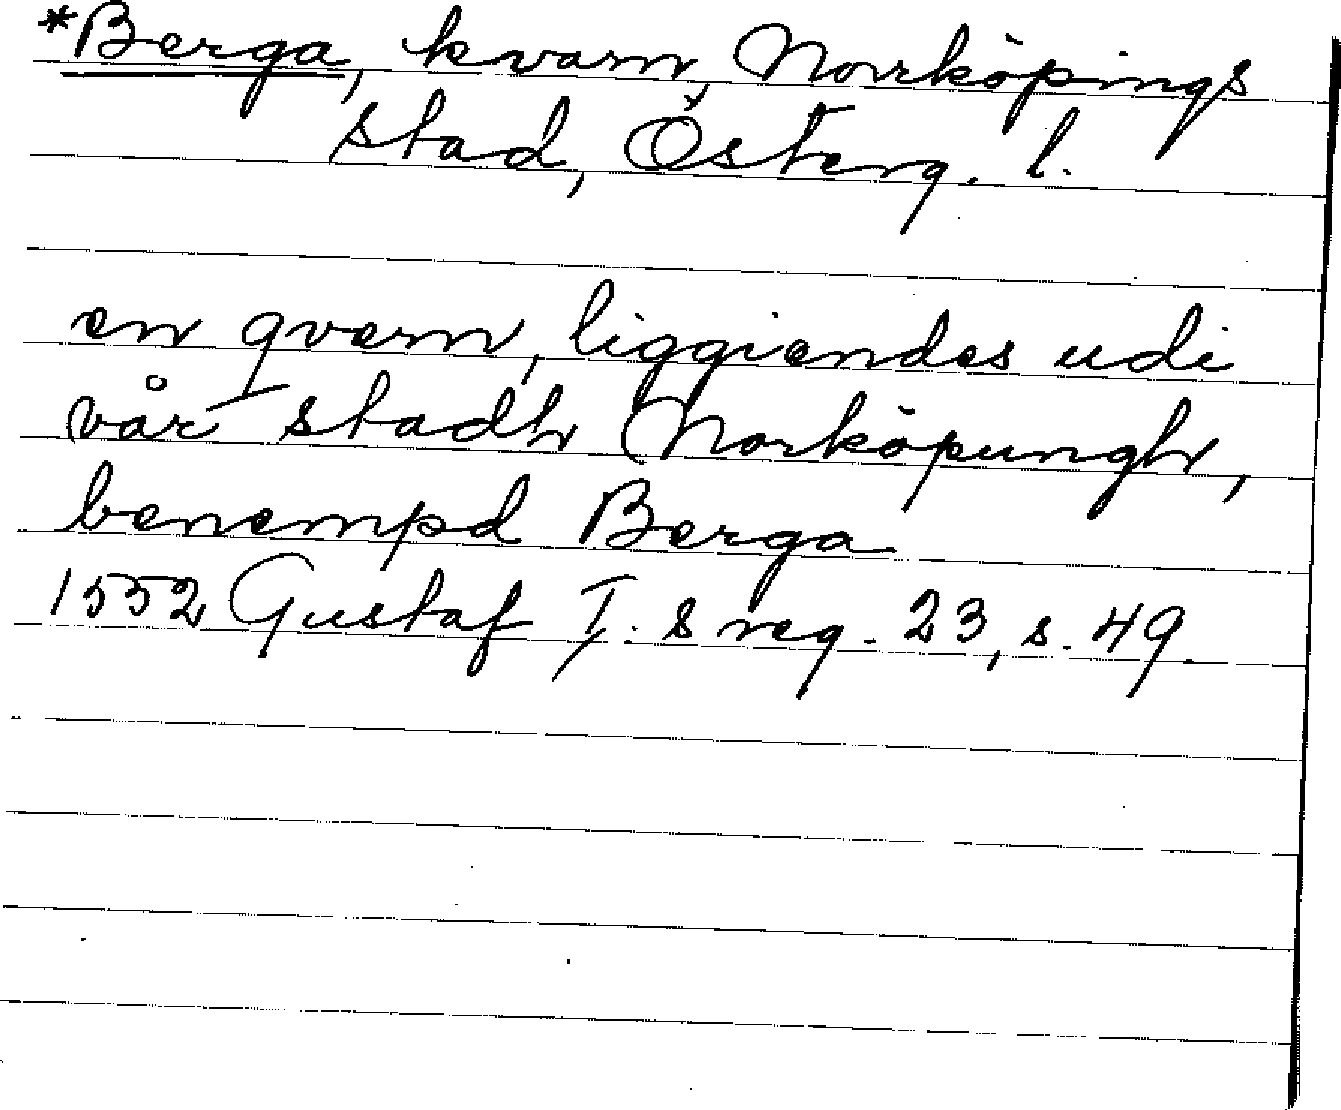 *Berga, kvarn, Norrköpings
stad, Österg. l.
en qvern, liggiendes udi
vår stadh Norköpungh,
benempd Berga
1552 Gustaf I:s reg. 23, s. 49